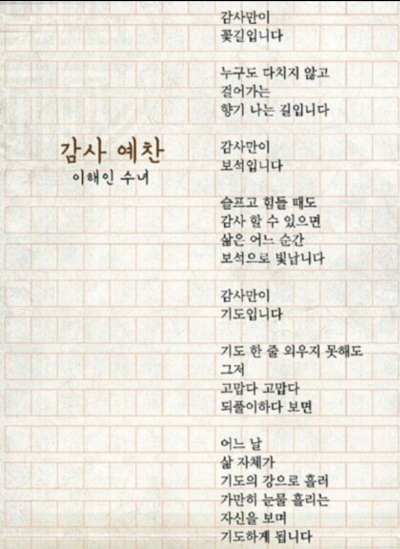 감사 예찬
이해인 수녀
감사만이
꽃길입니다
누구도 다치지 않고
걸어가는
향기 나는 길입니다
감사만이
보석입니다
슬프고 힘들 때도
감사 할 수 있으면
삶은 어느 순간
보석으로 빛납니다
감사만이
기도입니다
기도 한 줄 외우지 못해도
그저
고맙다 고맙다
되풀이하다 보면
어느 날
삶 자체가
기도의 강으로 흘러
가만히 눈물 흘리는
자신을 보며
기도하게 됩니다